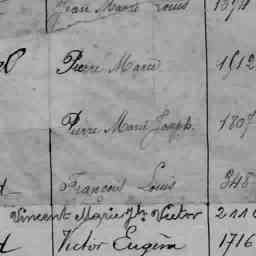 Jean Marie Louis
Pierre Marie 1912
Pierre Marie Joseph. 1807
François Louis 348
Vincent Marie Victor 2110
Victor Eugène 1716